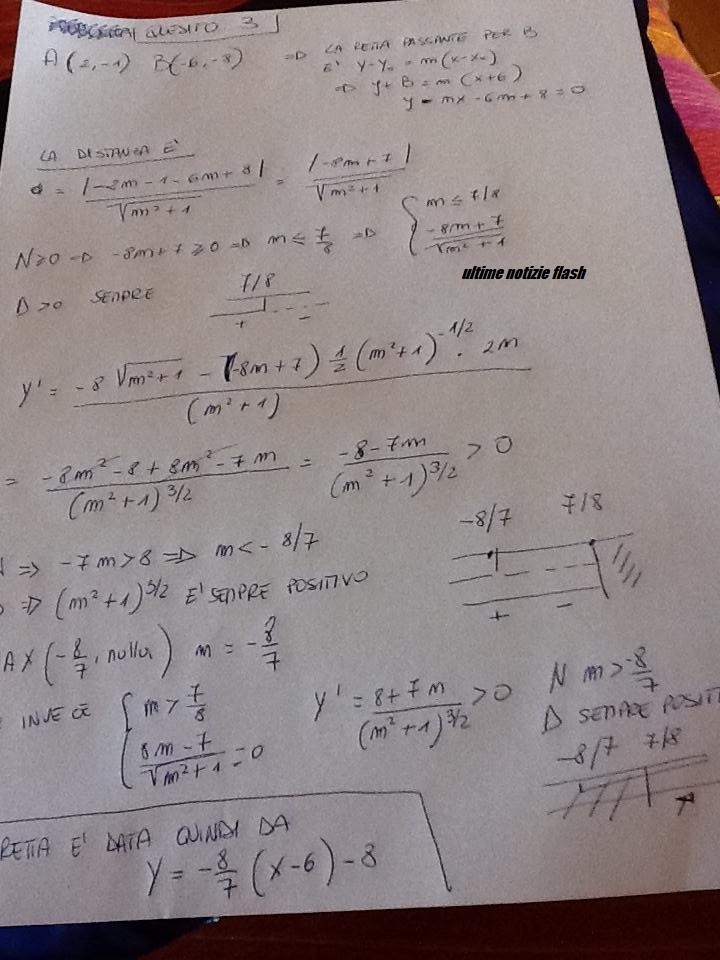 QUESITO 3
A(2,-1) B(-6,-8) => LA RETTA PASSANTE PER B
E' y-y₀ = m(x-x₀)
=> y+8 = m(x+6)
y - mx - 6m + 8 = 0
LA DISTANZA E'
d = |-2m - 1 - 6m + 8| / √m²+1 = |-8m+7| / √m²+1
N≥0 => -8m+7 ≥0 => m ≤ 7/8 => { m ≤ 7/8
-8m+7 / √m²+1
ultime notizie flash
D>0 SEMPRE 7/8
+ -
y' = -8 √m²+1 - (-8m+7) 1/2 (m²+1)^-1/2 · 2m / (m²+1)
= -8m² - 8 + 8m² - 7m / (m²+1)^3/2 = -8-7m / (m²+1)^3/2 > 0
=> -7m>8 => m<-8/7
-8/7 7/8
=> (m²+1)^3/2 E' SEMPRE POSITIVO
+ -
(-8/7, nulla) m = -8/7
INVECE { m > 7/8
8m-7 / √m²+1 = 0
y' = 8+7m / (m²+1)^3/2 > 0
N m>-8/7
D SEMPRE
-8/7 7/8
+
RETTA E' DATA QUINDI DA
y = -8/7 (x-6) - 8